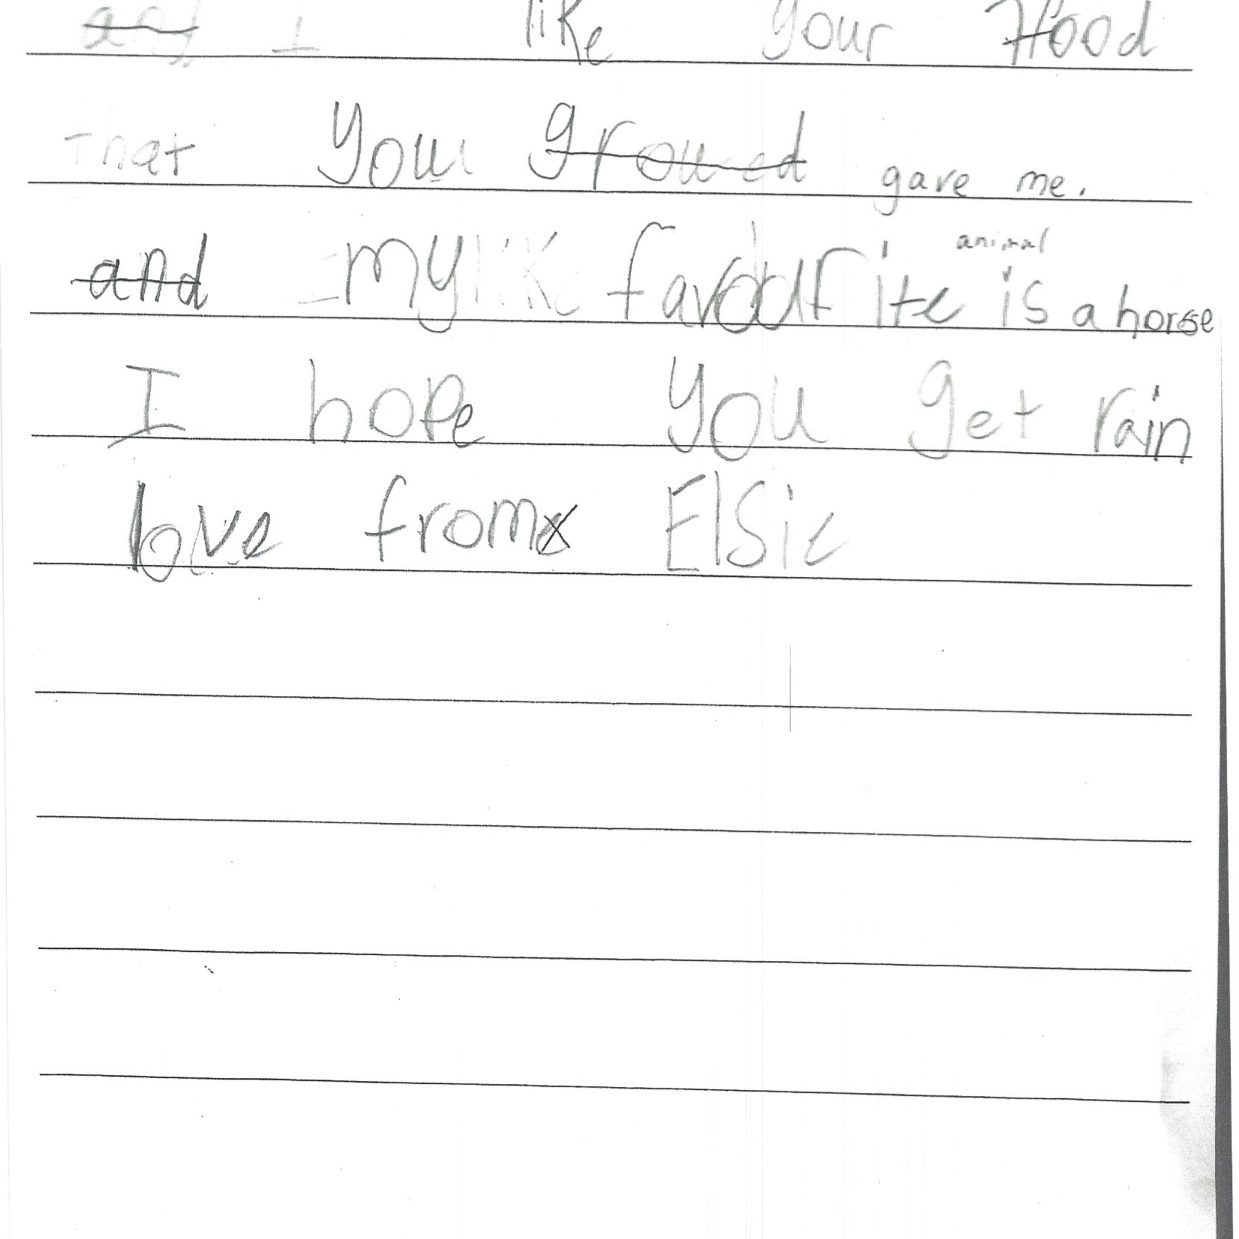 and I like your food
that you growed gave me.
and my favourite animal is a horse
I hope you get rain
love from x Elsie